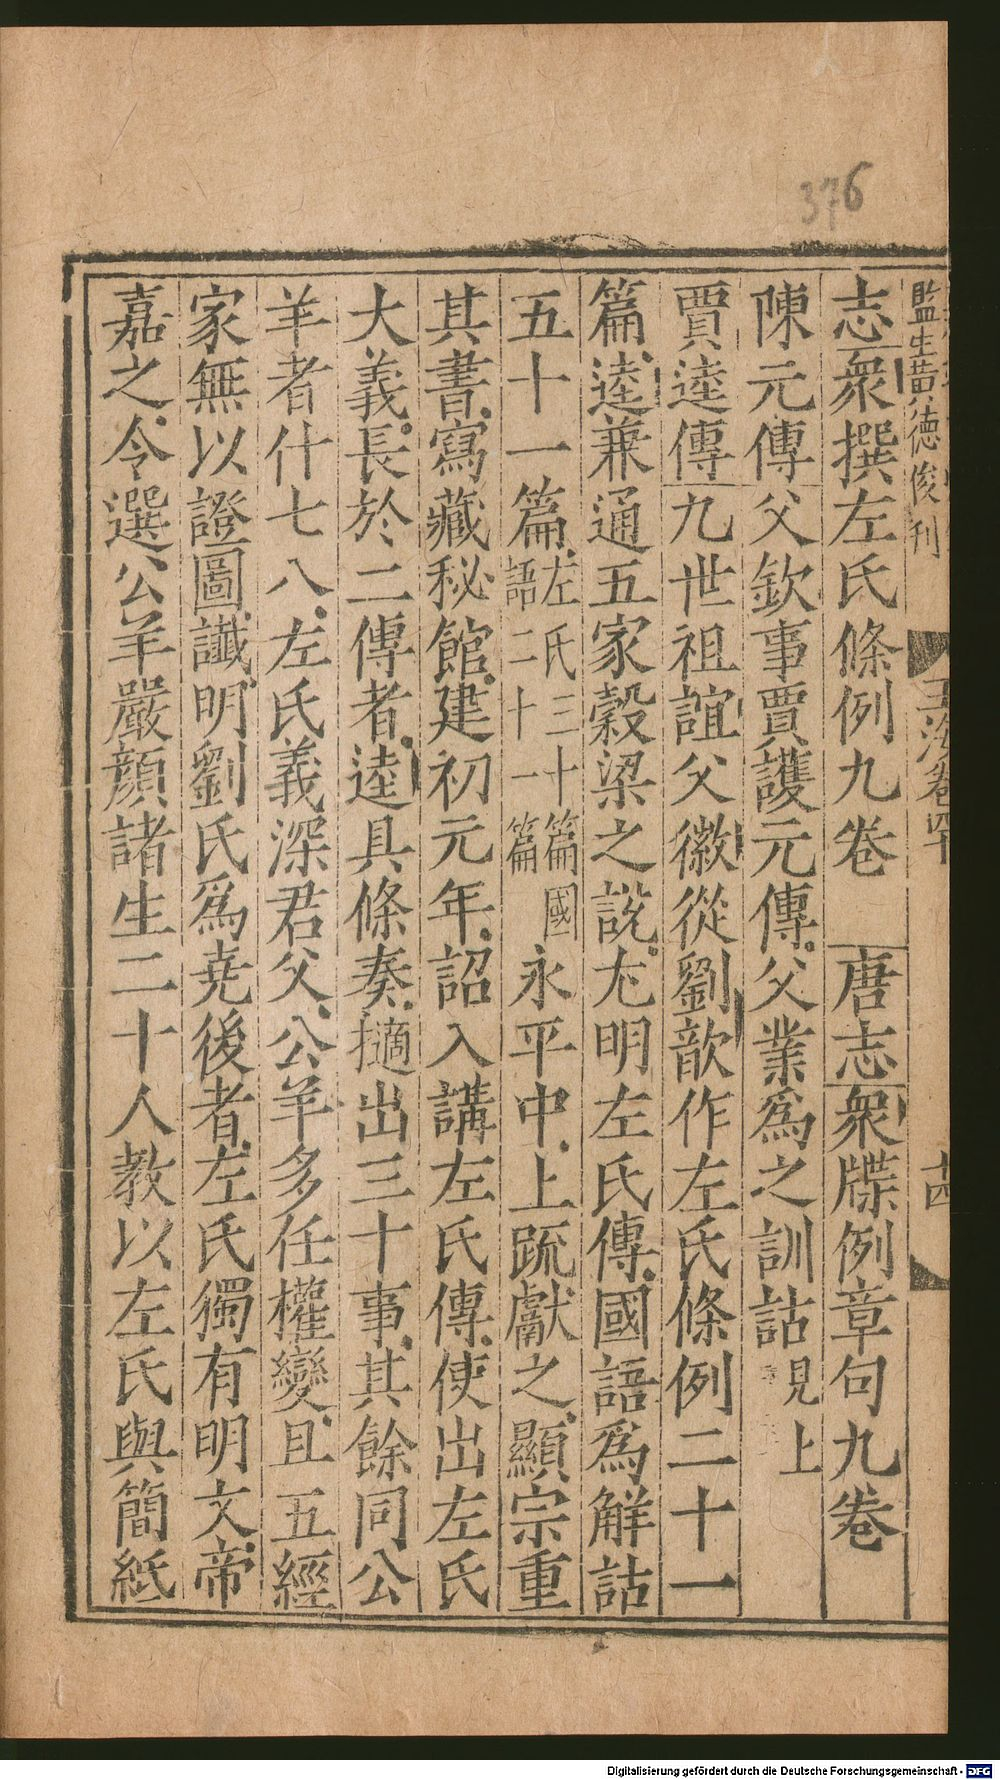 376
監生黄德俊刊
玉海卷四十
十四
志衆撰左氏條例九卷 唐志衆牒例章句九卷
陳元傳父欽事賈護元傳父業爲之訓詁見上
賈逵傳九世祖誼父徽從劉歆作左氏條例二十一
篇逵兼通五家穀梁之說尤明左氏傳國語爲解詁
五十一篇左氏三十篇國語二十一篇永平中上疏獻之顯宗重
其書寫藏秘館建初元年詔入講左氏傳使出左氏
大義長於二傳者逵具條奏擿出三十事其餘同公
羊者什七八左氏義深君父公羊多任權變且五經
家無以證圖讖明劉氏爲堯後者左氏獨有明文帝
嘉之令選公羊嚴顔諸生二十人教以左氏與簡紙
Digitalisierung gefördert durch die Deutsche Forschungsgemeinschaft - DFG